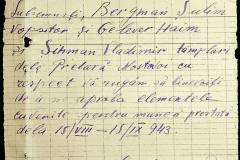 Subsemnații, Bergman Sulim
vopsitor și Gelever Haim
și Schman Vladimir tamplari
dela Primară Mostovoi cu
respect vă rugăm să binevoiți
de a ne aproba elementele
cuvenite pentru munca prestată
dela 15/VIII – 15/IX 943.